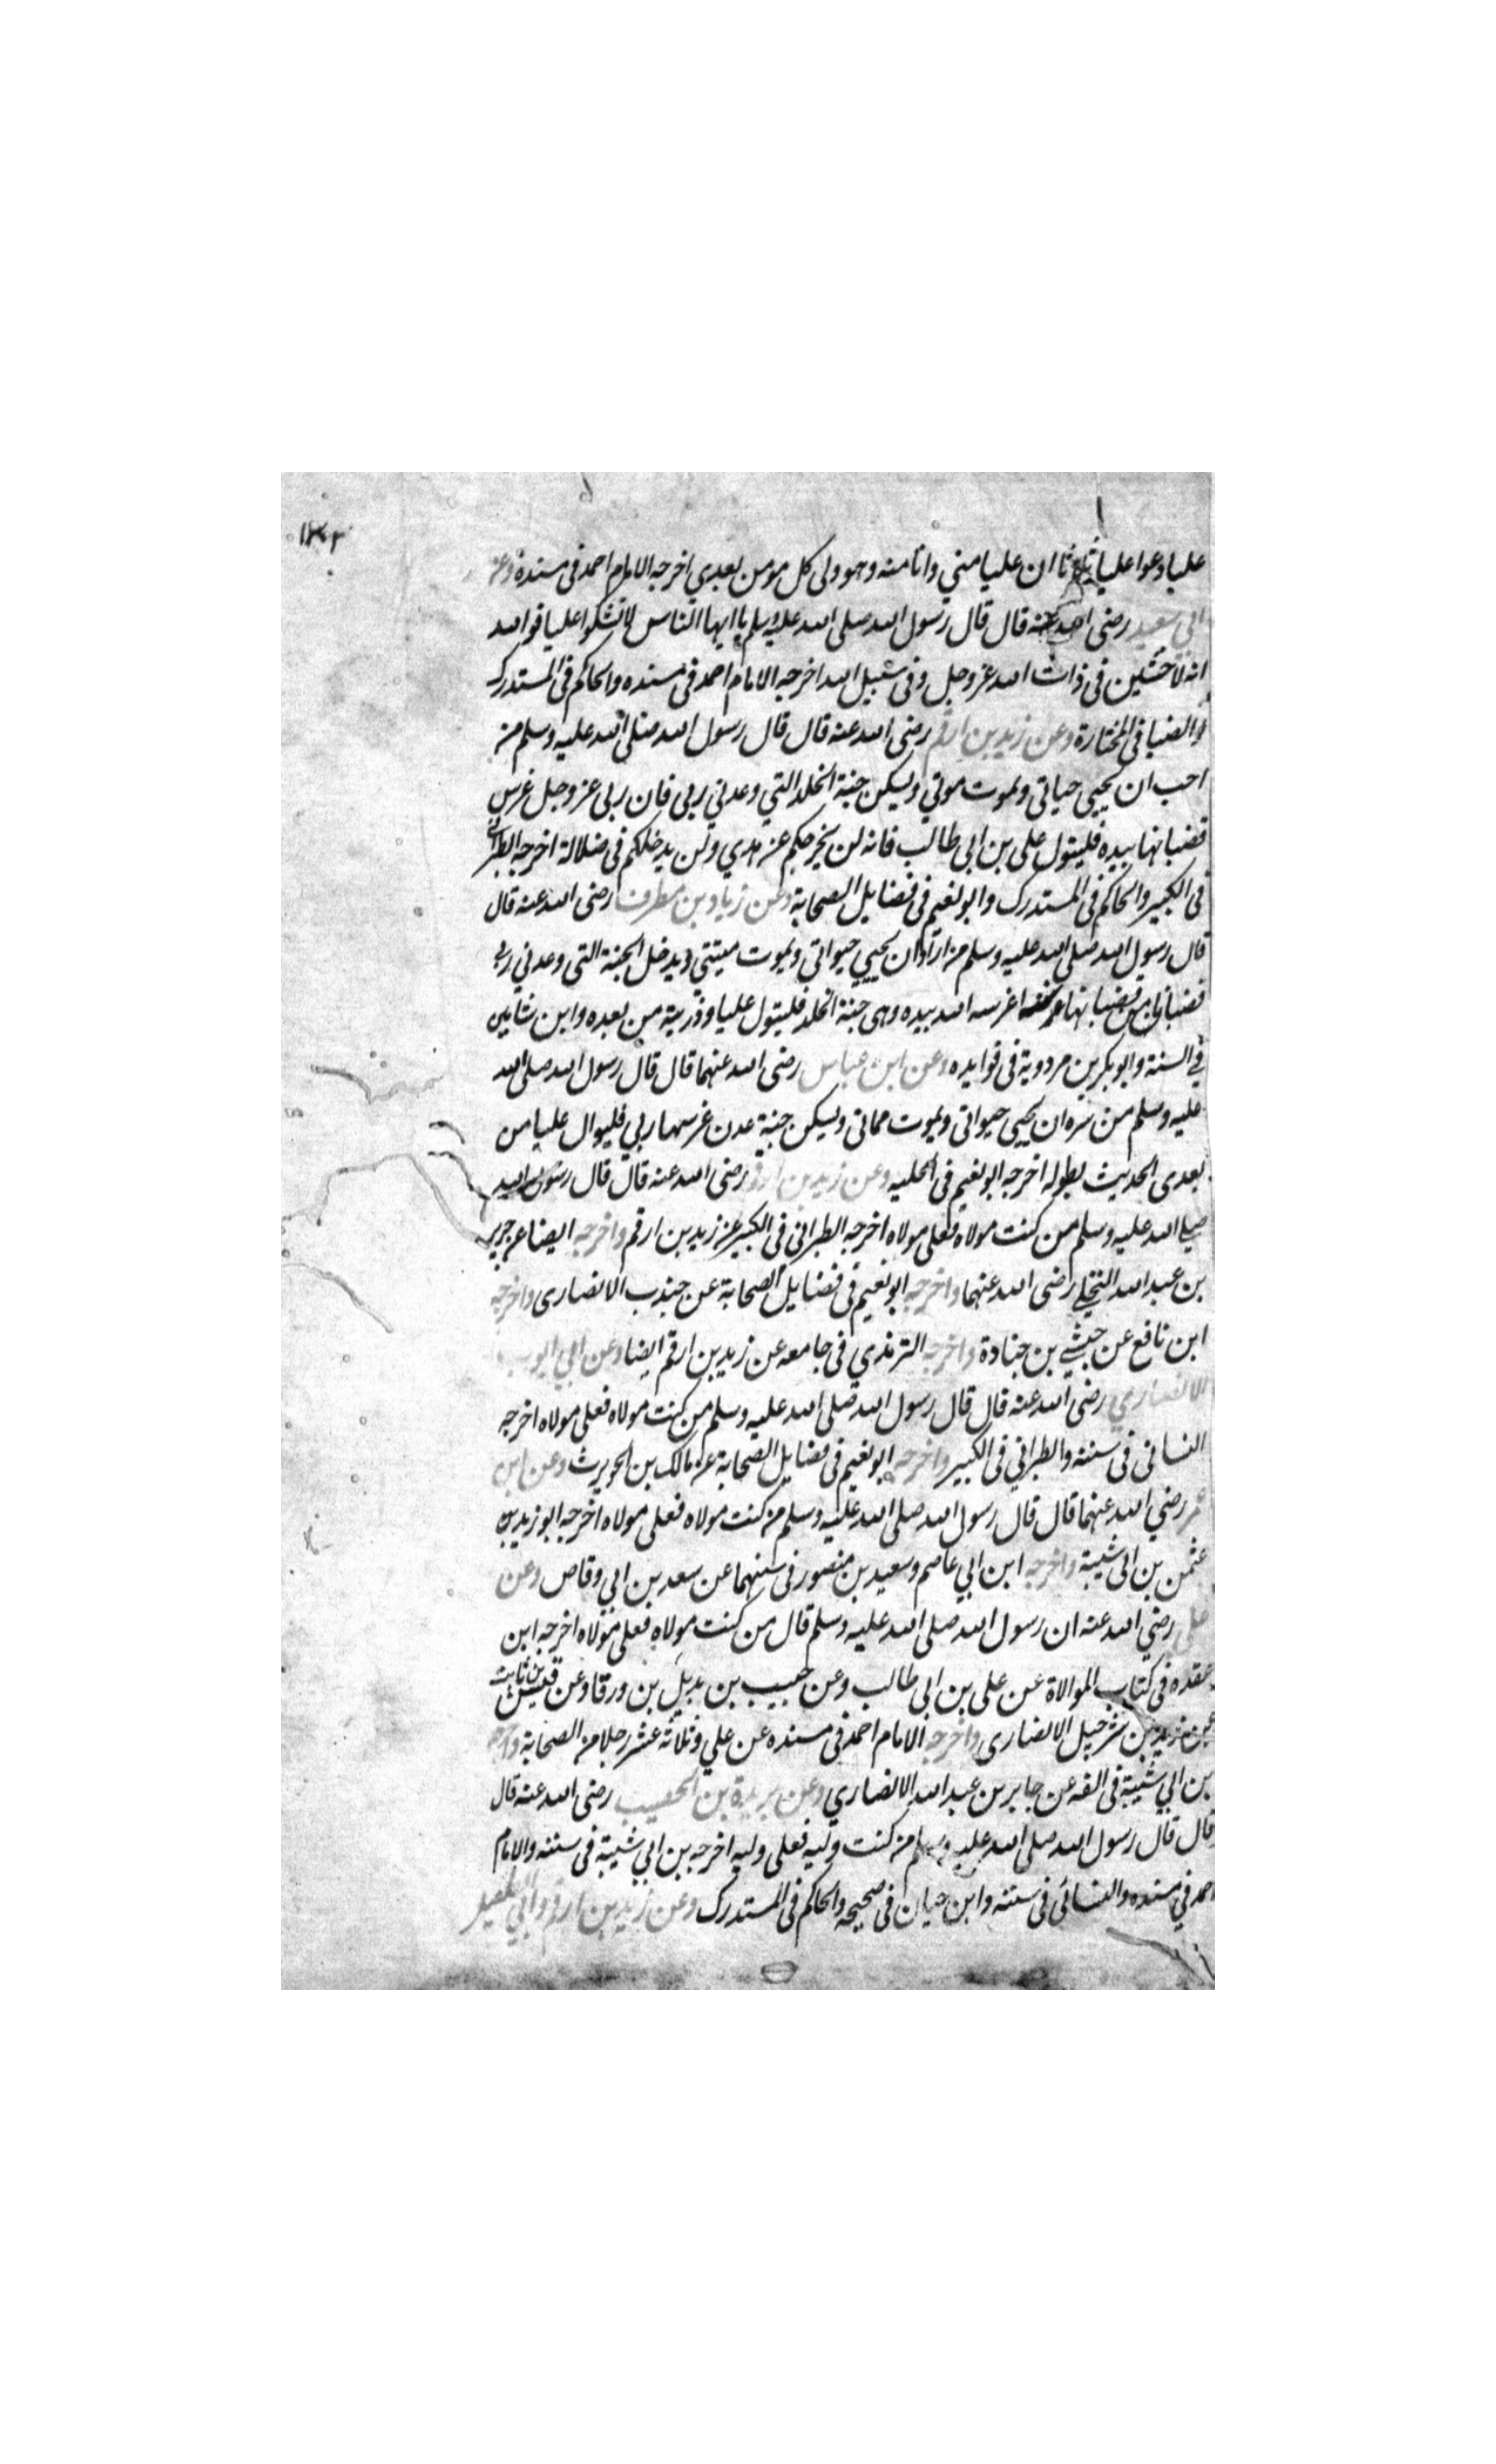 ١٣٠٢
عليا دعوا عليا ثلاثا ان عليا مني وانا منه وهو ولي كل مومن بعدي اخرجه الامام احمد في مسنده وعن
ابي سعيد رضي الله عنه قال قال رسول الله صلى الله عليه وسلم يا ايها الناس لا تشكوا عليا فوالله
انه لاخشين في ذات الله عز وجل وفي سبيل الله اخرجه الامام احمد في مسنده والحاكم في المستدرك
والضيا في المختارة وعن زيد بن ارقم رضي الله عنه قال قال رسول الله صلى الله عليه وسلم من
احب ان يحيى حياتي ويموت موتي ويسكن جنة الخلد التي وعدني ربي فان ربي عز وجل غرس
قضبانها بيده فليتول علي بن ابي طالب فانه لن يخرجكم عن هدي ولن يدخلكم في ضلالة اخرجه الطبراني
في الكبير والحاكم في المستدرك وابو نعيم في فضايل الصحابة وعن زياد بن مطرف رضي الله عنه قال
قال رسول الله صلى الله عليه وسلم من اراد ان يحيي حيواتي ويموت ميتتي ويدخل الجنة التي وعدني ربي
قضبانا من قضبانها غرسه الله بيده وهي جنة الخلد فليتول عليا وذريته من بعده وابن شاهين
في السنة وابو بكر بن مردوية في فوايده وعن ابن عباس رضي الله عنهما قال قال رسول الله صلى الله
عليه وسلم من سره ان يحيى حيواتي ويموت مماتي ويسكن جنة عدن غرسها ربي فليوال عليا من
بعدي الحديث بطوله اخرجه ابو نعيم في الحليه وعن زيد بن ارقم رضي الله عنه قال قال رسول الله
صلى الله عليه وسلم من كنت مولاه فعلي مولاه اخرجه الطبراني في الكبير عن زيد بن ارقم واخرجه ايضا عن جرير
بن عبد الله البجلي رضي الله عنهما واخرجه ابو نعيم في فضايل الصحابة عن جندب الانصاري واخرجه
ابن نافع عن حبشي بن جنادة واخرجه الترمذي في جامعه عن زيد بن ارقم ايضا وعن ابي ايوب
الانصاري رضي الله عنه قال قال رسول الله صلى الله عليه وسلم من كنت مولاه فعلي مولاه اخرجه
النسائي في سننه والطبراني في الكبير واخرجه ابو نعيم في فضايل الصحابة عن مالك بن الحويرث وعن ابن
عمر رضي الله عنهما قال قال رسول الله صلى الله عليه وسلم من كنت مولاه فعلي مولاه اخرجه ابو زيد بن
عثمن بن ابي شيبة واخرجه ابن ابي عاصم وسعيد بن منصور في سننهما عن سعد بن ابي وقاص وعن
علي رضي الله عنه ان رسول الله صلى الله عليه وسلم قال من كنت مولاه فعلي مولاه اخرجه ابن
عقده في كتاب الموالاة عن علي بن ابي طالب وعن حبيب بن بديل بن ورقا وعن قيس بن ثابت
عن زيد بن شرحيل الانصاري واخرجه الامام احمد في مسنده عن علي وثلاثة عشر رجلا من الصحابة واخرجه
بن ابي شيبة في الفه عن جابر بن عبد الله الانصاري وعن بريدة بن الحصيب رضي الله عنه قال
قال قال رسول الله صلى الله عليه وسلم من كنت وليه فعلي وليه اخرجه بن ابي شيبة في سننه والامام
احمد في مسنده والنسائي في سننه وابن حبان في صحيحه والحاكم في المستدرك وعن زيد بن ارقم وابي الطفيل